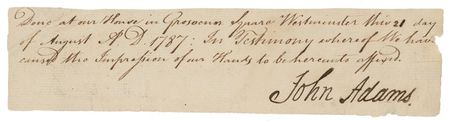 Done at our House in Grosvenor Square Westminster this 21 day
of August A. D. 1787: In Testimony whereof We have
caused the Impression of our Hands to be hereunto affixed.
John Adams.